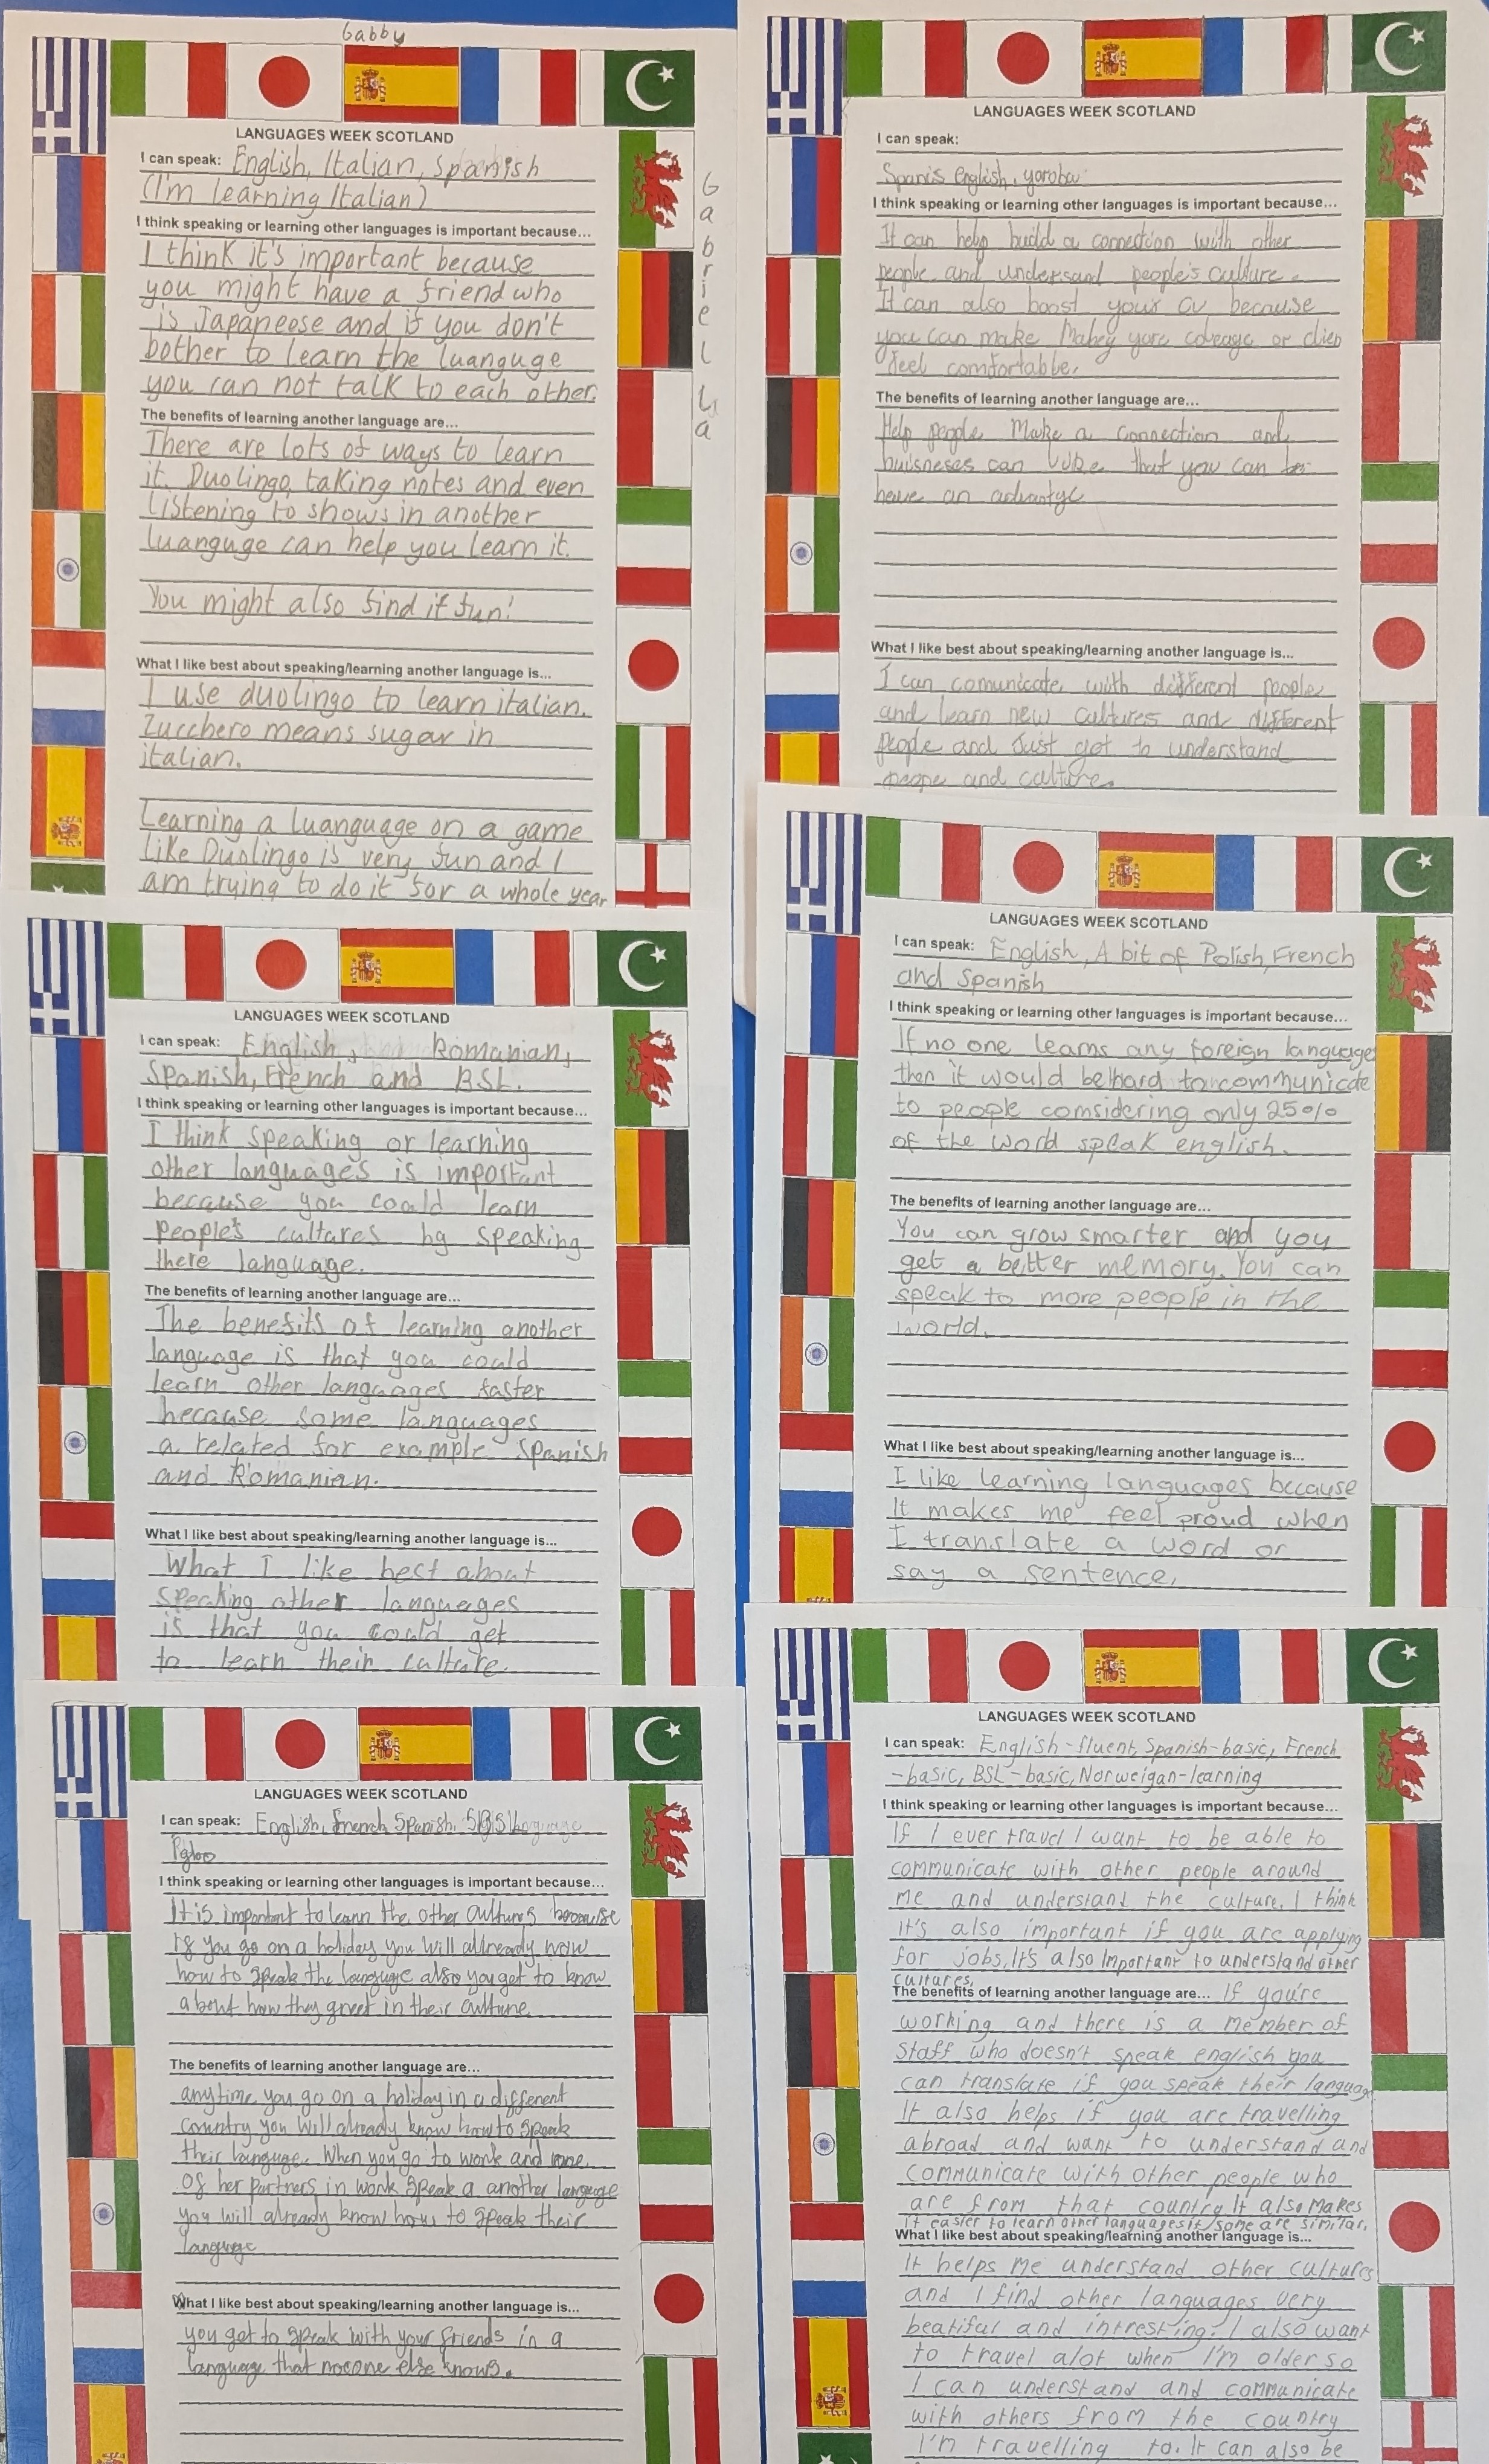 Gabby
LANGUAGES WEEK SCOTLAND
I can speak: English, Italian, Spanish
(I'm learning Italian)
I think speaking or learning other languages is important because...
I think it's important because
you might have a friend who
is Japaneose and if you don't
bother to learn the luanguge
you can not talk to each other.
The benefits of learning another language are...
There are lots of ways to learn
it. Duolingo, taking notes and even
listening to shows in another
luanguge can help you learn it.
You might also find it fun!
What I like best about speaking/learning another language is...
I use duolingo to learn italian.
Zucchero means sugar in
italian.
Learning a luanguage on a game
like Duolingo is very fun and I
am trying to do it for a whole year
Gabriella
LANGUAGES WEEK SCOTLAND
I can speak:
Spanis english, yoroba
I think speaking or learning other languages is important because...
It can help build a connection with other
people and undersand people's culture.
It can also boost your cv because
you can make Mabey yore coleage or clien
feel comfortable.
The benefits of learning another language are...
Help people Make a connection and
buisneses can that you can
have an advantge
What I like best about speaking/learning another language is...
I can comunicate with different people
and learn new cultures and different
people and Just get to understand
peope and culture.
LANGUAGES WEEK SCOTLAND
I can speak: English, Romanian,
Spanish, French and BSL.
I think speaking or learning other languages is important because...
I think speaking or learning
other languages is important
because you could learn
people's cultures by speaking
there language.
The benefits of learning another language are...
The benefits of learning another
language is that you could
learn other languages faster
because some languages
a related for example Spanish
and Romanian.
What I like best about speaking/learning another language is...
What I like best about
speaking other languages
is that you could get
to learn their culture.
LANGUAGES WEEK SCOTLAND
I can speak: English, A bit of Polish, French
and Spanish
I think speaking or learning other languages is important because...
If no one learns any foreign languages
then it would be hard to communicate
to people comsidering only 25%
of the world speak english.
The benefits of learning another language are...
You can grow smarter and you
get a better memory. You can
speak to more people in the
world.
What I like best about speaking/learning another language is...
I like learning languages because
It makes me feel proud when
I translate a word or
say a sentence.
LANGUAGES WEEK SCOTLAND
I can speak: English, french, Spanish,
I think speaking or learning other languages is important because...
It is important to learn the other cultures because
if you go on a holiday you will allready now
how to speak the language also you get to know
about how they greet in their culture
The benefits of learning another language are...
anytime you go on a holiday in a different
country you will already know how to speak
their language. When you go to work and one
of her partners in work speak a another language
you will already know how to speak their
language
What I like best about speaking/learning another language is...
you get to speak with your friends in a
language that nooone else knows.
LANGUAGES WEEK SCOTLAND
I can speak: English-fluent, Spanish-basic, French
-basic, BSL-basic, Norweigan-learning
I think speaking or learning other languages is important because...
If I ever travel I want to be able to
communicate with other people around
me and understand the culture. I think
it's also important if you are applying
for jobs, It's also Important to understand other
cultures.
The benefits of learning another language are... If you're
working and there is a member of
staff who doesn't speak english you
can translate if you speak their language
It also helps if you are travelling
abroad and want to understand and
communicate with other people who
are from that country. It also makes
it easier to learn other languages if some are similar.
What I like best about speaking/learning another language is...
It helps me understand other cultures
and I find other languages very
beatiful and intresting. I also want
to travel alot when I'm older so
I can understand and communicate
with others from the country
I'm travelling to. It can also be